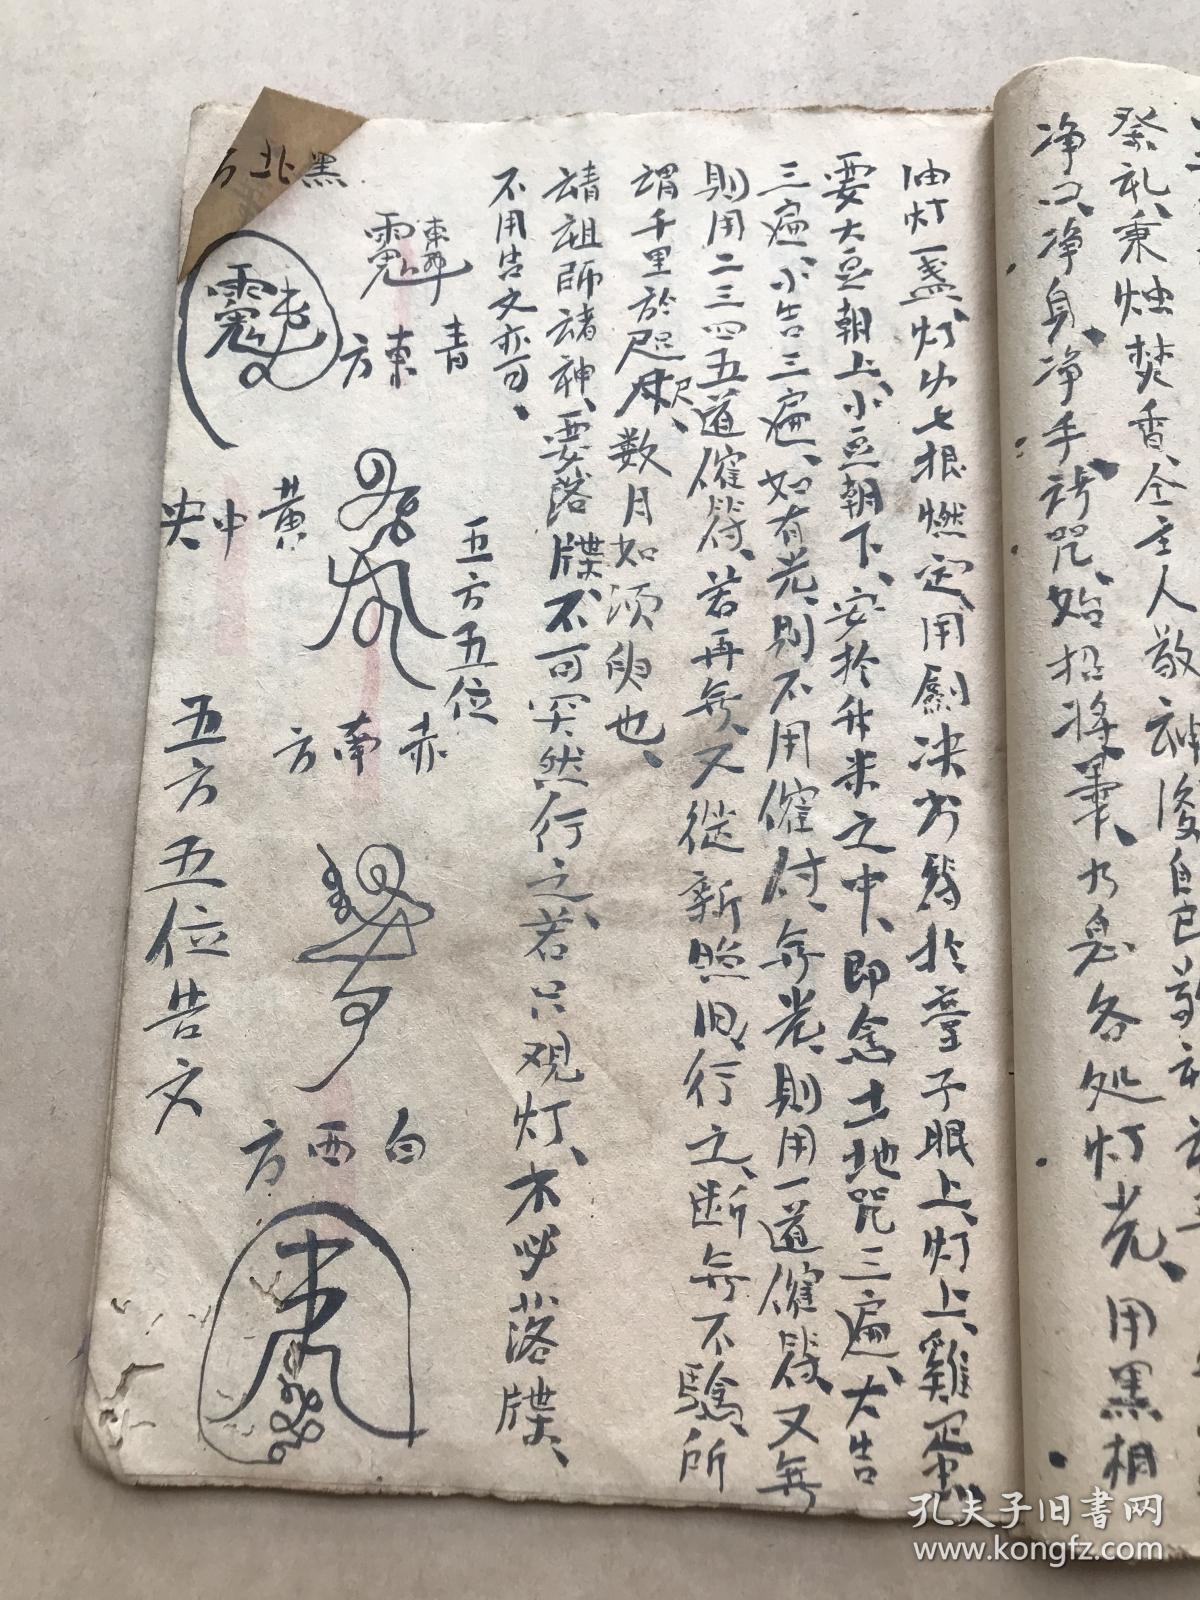 祭礼、秉烛焚香、令主人敬神後自已
净口、净身、净手、诀咒、始招将軍、力息各处灯光、用黑相
油灯一盏、灯火七根燃定、用劍决书符於童子眼上、灯上、雞蛋
要大豆朝上、小豆朝下、安於升米之中、即念土地咒三遍、大告
三遍、小告三遍、如有光、則不用催付、無光、則用一道催符、又無
則用二三四五道催符、若再無、又従新照旧、行之、断無不驗、所
谓千里於咫尺、数月如须臾也、
请祖師诸神、要落牒、不可突然行之、若只观灯、不必落牒、
不用告文亦可、
五方五位
青東方
赤南方
白西方
黄中央
黑北方
五方五位告文
孔夫子旧书网
www.kongfz.com